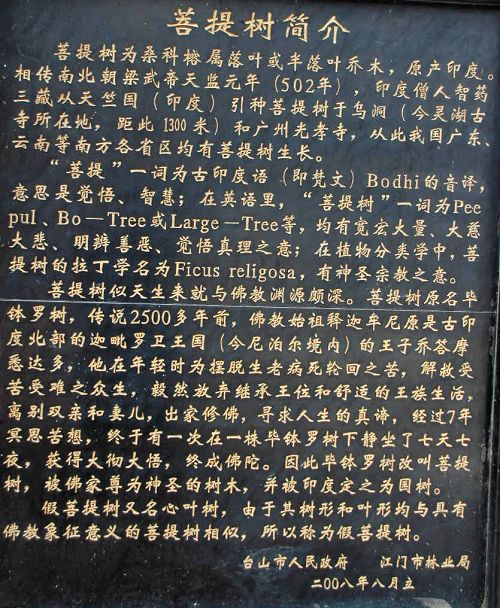 菩提树简介
菩提树为桑科榕属落叶或半落叶乔木，原产印度。
相传南北朝梁武帝天监元年（502年），印度僧人智药
三藏从天竺国（印度）引种菩提树于乌洞（今灵湖古
寺所在地，距此1300米）和广州光孝寺，从此我国广东、
云南等南方各省区均有菩提树生长。
“菩提”一词为古印度语（即梵文）Bodhi的音译，
意思是觉悟、智慧；在英语里，“菩提树”一词为Pee
pul、Bo—Tree或Large—Tree等，均有宽宏大量、大慈
大悲、明辨善恶、觉悟真理之意；在植物分类学中，菩
提树的拉丁学名为Ficus religosa，有神圣宗教之意。
菩提树似天生来就与佛教渊源颇深。菩提树原名毕
钵罗树，传说2500多年前，佛教始祖释迦牟尼原是古印
度北部的迦毗罗卫王国（今尼泊尔境内）的王子乔答摩
悉达多，他在年轻时为摆脱生老病死轮回之苦，解救受
苦受难之众生，毅然放弃继承王位和舒适的王族生活，
离别双亲和妻儿，出家修佛，寻求人生的真谛，经过7年
冥思苦想，终于有一次在一株毕钵罗树下静坐了七天七
夜，获得大彻大悟，终成佛陀。因此毕钵罗树改叫菩提
树，被佛家尊为神圣的树木，并被印度定之为国树。
假菩提树又名心叶树，由于其树形和叶形均与具有
佛教象征意义的菩提树相似，所以称为假菩提树。
台山市人民政府 江门市林业局
二00八年八月立